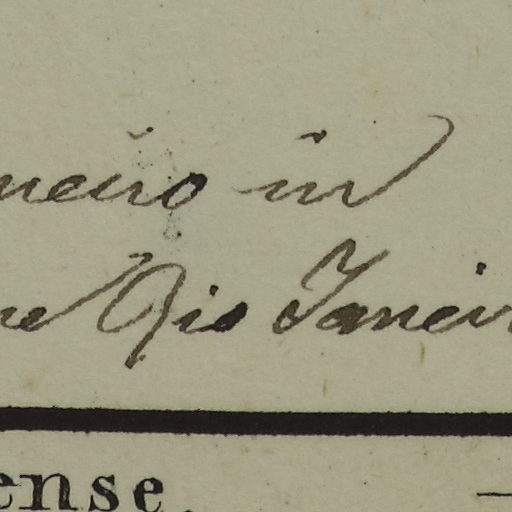 neiro in
ne Rio Janeir
ense.